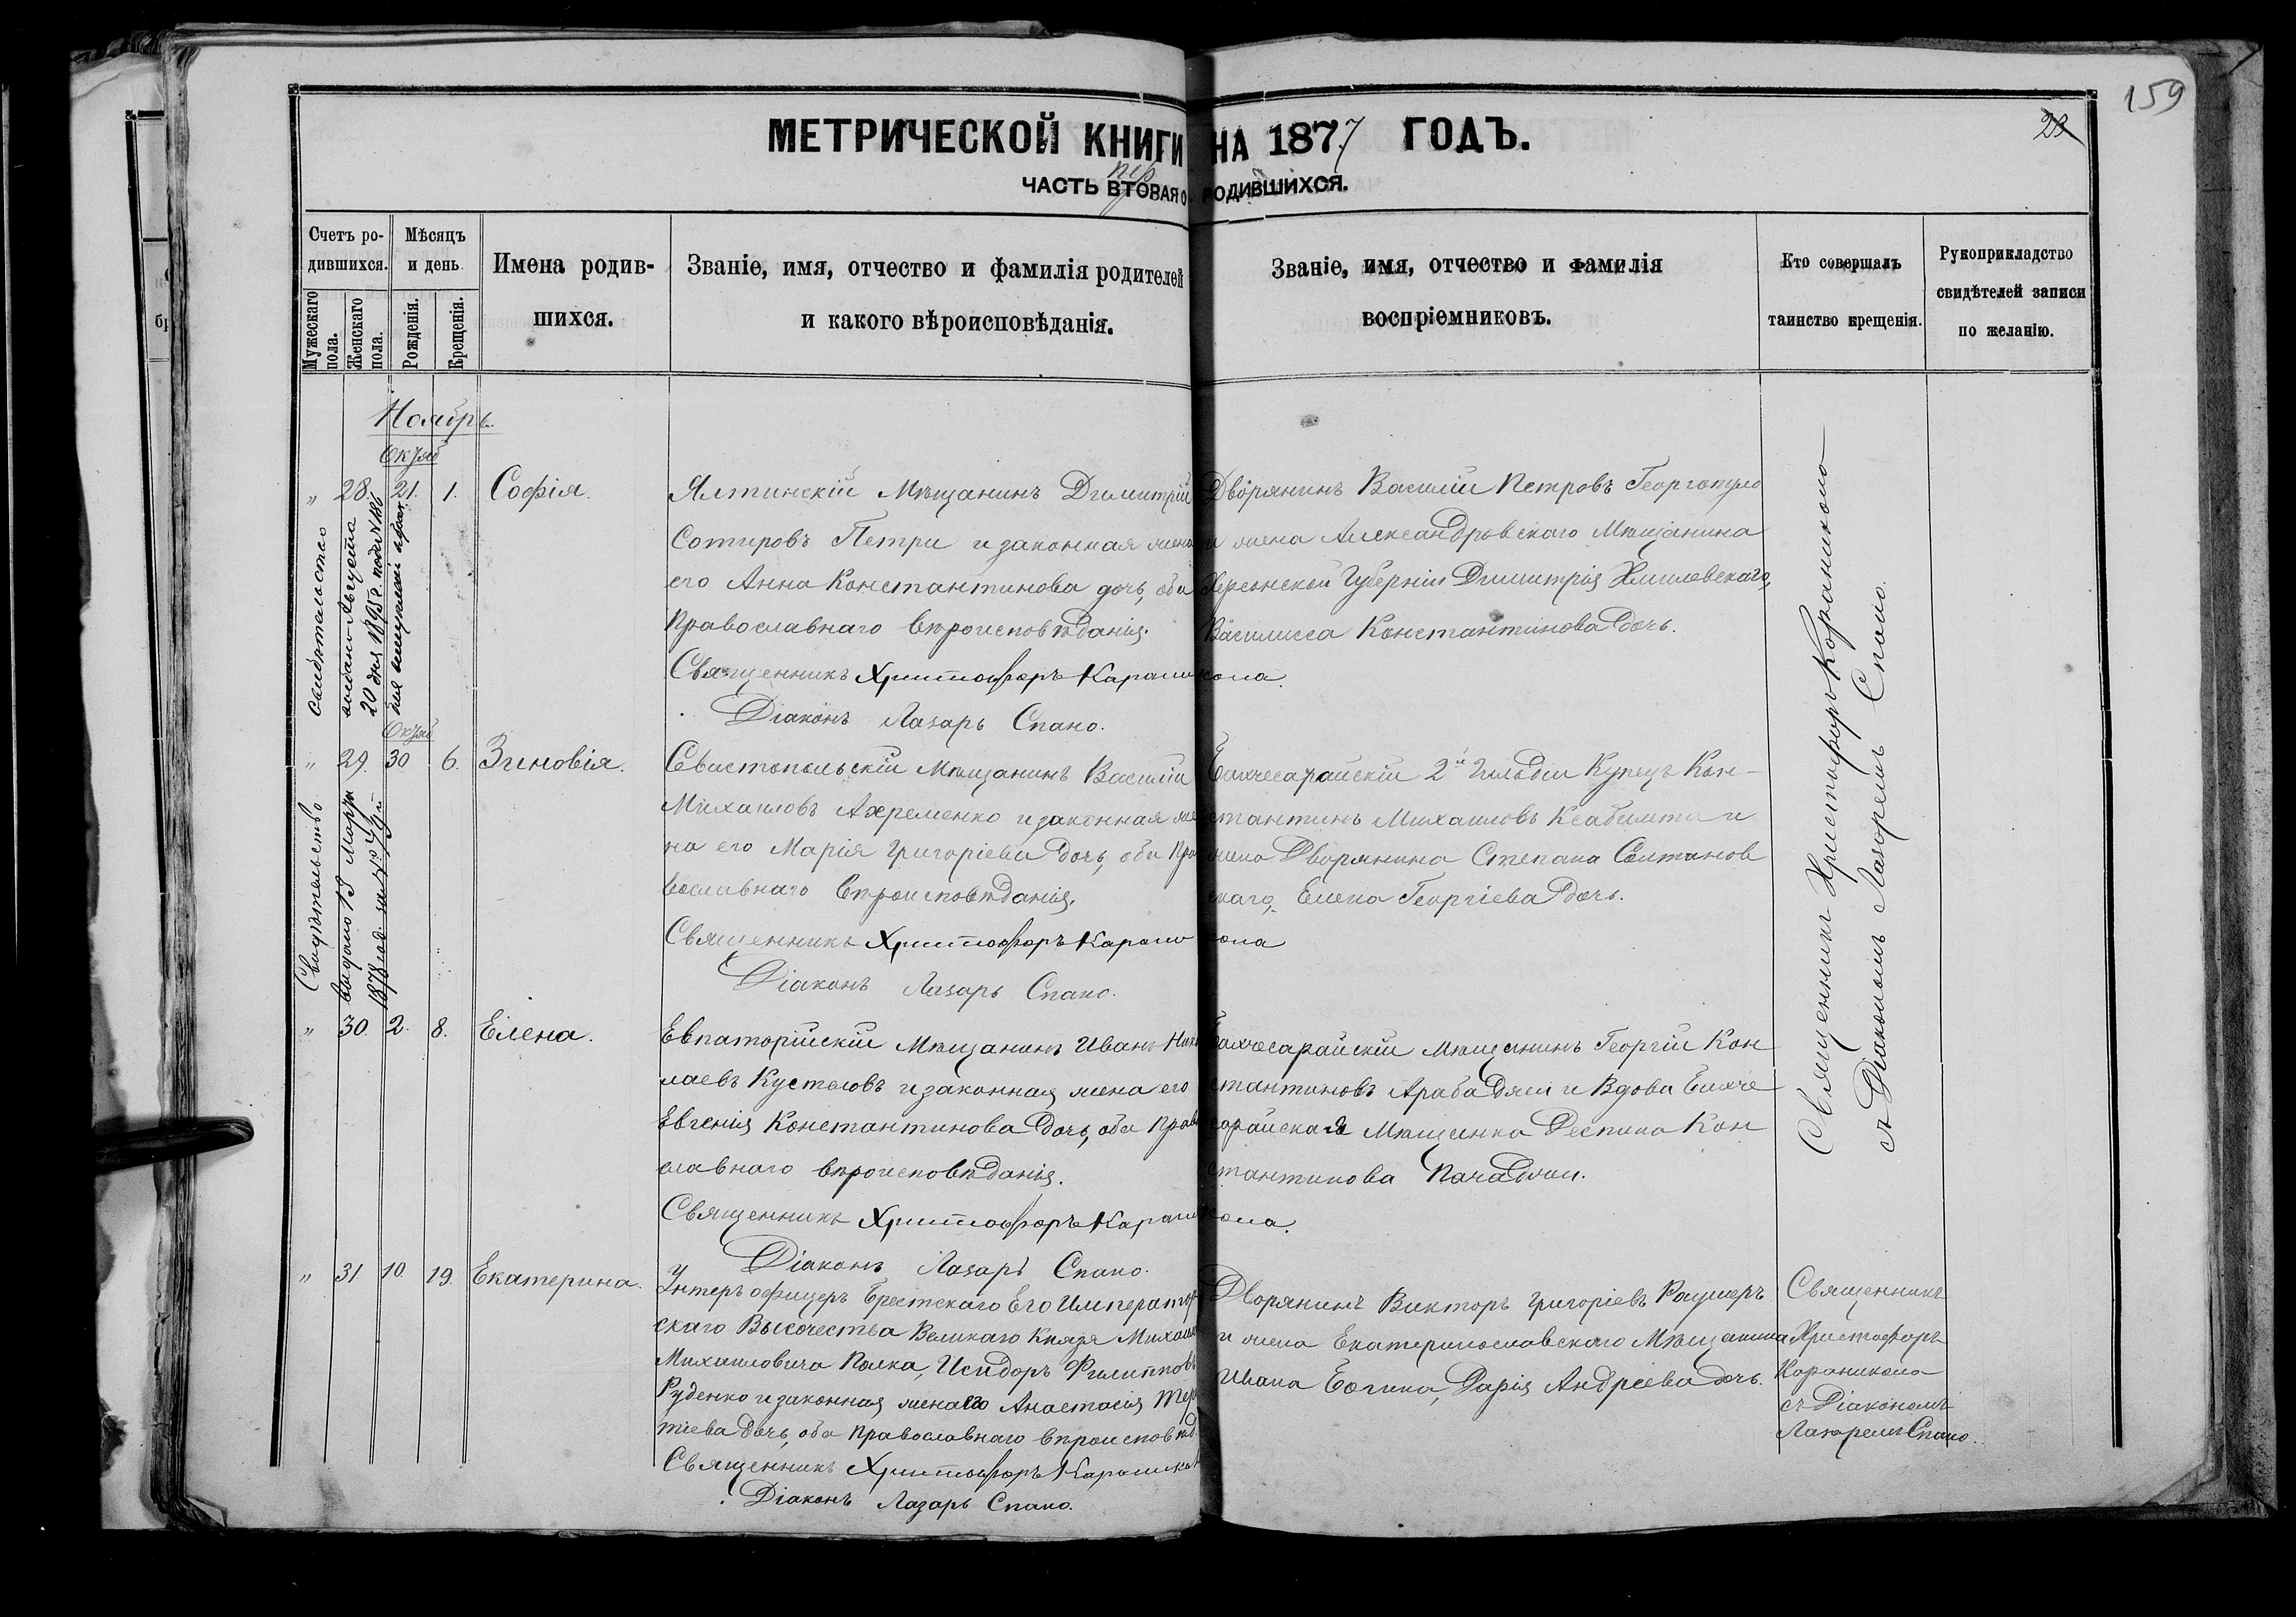 159
23
МЕТРИЧЕСКОЙ КНИГИ НА 1877 ГОДЪ.
пер
ЧАСТЬ ВТОРАЯ О РОДИВШИХСЯ.
Счетъ ро-
дившихся.
Мужескаго пола.
Женскаго пола.
Мѣсяцъ
и день
Рожденія.
Крещенія.
Имена родив-
шихся.
Званіе, имя, отчество и фамилія родителей
и какого вѣроисповѣданія.
Званіе, имя, отчество и фамилія
воспріемниковъ.
Кто совершалъ
таинство крещенія.
Рукоприкладство
свидѣтелей записи
по желанію.
Ноябрь
Октяб
" 28. 21. 1. Софія.
Ялтинскій Мѣщанинъ Димитрій
Сотировъ Петри и законная жена
его Анна Константинова дочь, оба
Православнаго вѣроисповѣданія.
Священникъ Христофоръ Караникола.
Діаконъ Лазарь Спано.
Дворянинъ Василій Петровъ Георгопуло
и жена Александровскаго Мѣщанина
Херсонской Губерніи Димитрія Хмилевскаго,
Василисса Константинова дочь.
Свидѣтельство
выдано Августа
20 дня 1895 г. подъ №186
Октяб
" 29. 30 6. Зиновія.
Севастопольскій Мѣщанинъ Василій
Михаиловъ Ахременко и законная же
на его Марія Григоріева дочь, оба Пра
вославнаго вѣроисповѣданія.
Священникъ Христофоръ Караникола
Діаконъ Лазарь Спано.
Бахчесарайскій 2й Гильдіи Купецъ Кон-
стантинъ Михаиловъ и
жена Дворянина Степана Солтанов
скаго, Елена Георгіева дочь.
Свидѣтельство
выдано 15 Марта
1878 год. за №
" 30. 2. 8. Елена.
Евпаторійскій Мѣщанинъ Иванъ Нико
лаевъ Кустовъ и законная жена его
Евгенія Константинова дочь, оба Право
славнаго вѣроисповѣданія.
Священникъ Христофоръ Караникола.
Діаконъ Лазарь Спано.
Бахчесарайскій Мѣщанинъ Георгій Кон
стантиновъ Арабаджи и Вдова Бахче
сарайская Мѣщанка Деспина Кон
стантинова Пачаджи.
Священникъ Христофоръ Караникола
съ Діакономъ Лазаремъ Спано.
" 31 10. 19. Екатерина.
Унтеръ офицеръ Брестскаго Его Император
скаго Высочества Великаго Князя Михаила
Михаиловича Полка, Исидоръ Филипповъ
Руденко и законная жена его Анастасія Тер
тіева дочь, оба православнаго вѣроисповѣд.
Священникъ Христофоръ Караникола
Діаконъ Лазарь Спано.
Дворянинъ Викторъ Григоріевъ Раушеръ
и жена Екатеринославскаго Мѣщанина
Ивана Богина, Дарія Андреева дочь.
Священникъ
Христофоръ
Караникола
съ Діакономъ
Лазаремъ Спано.